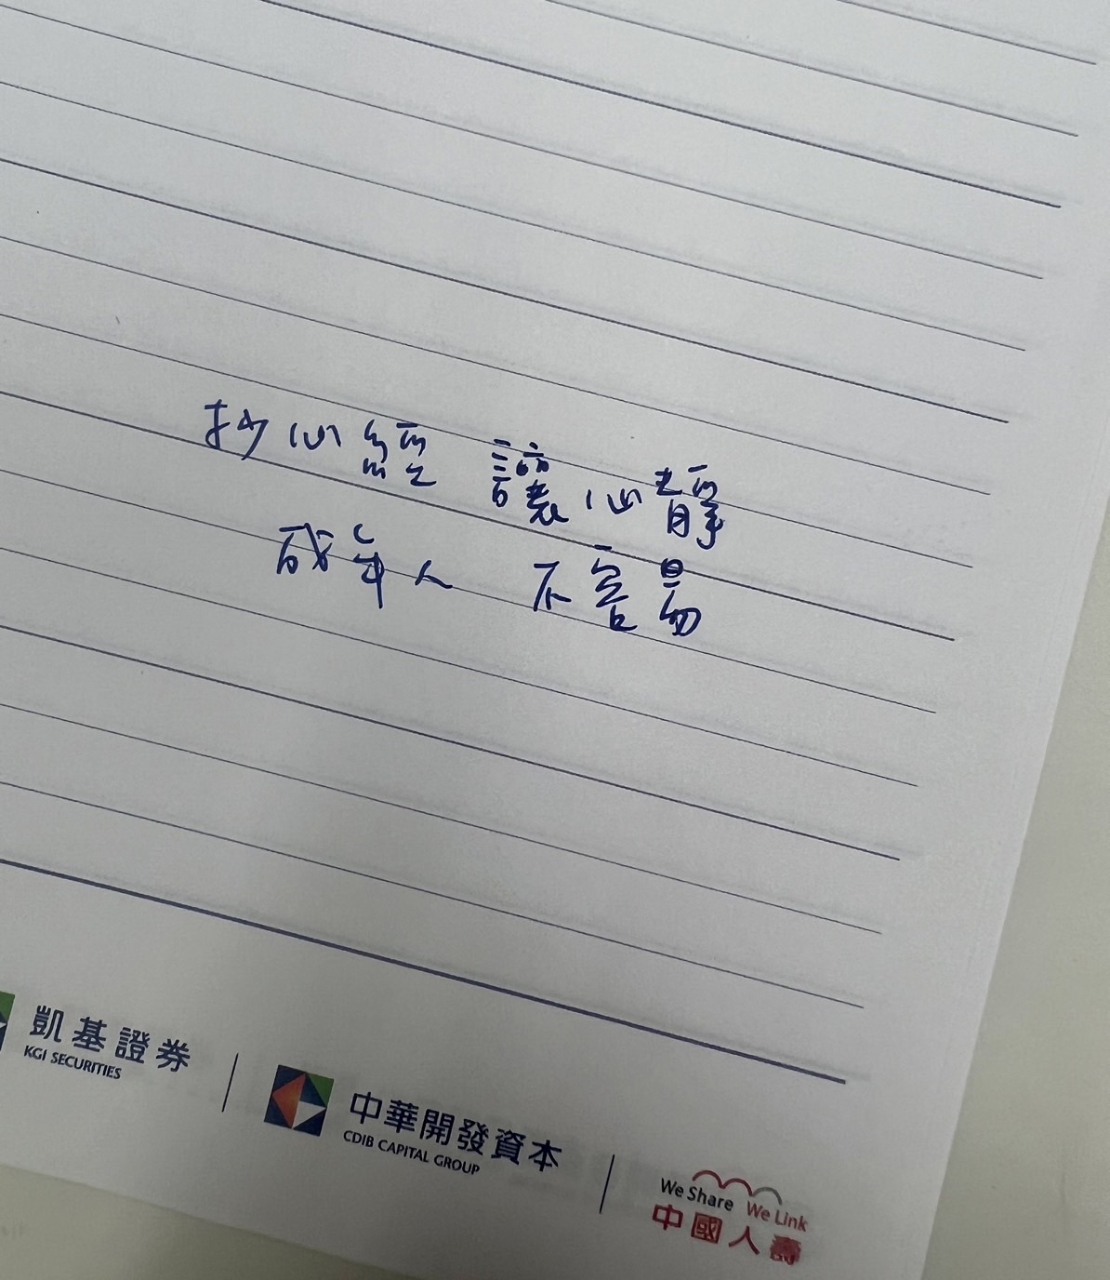 抄心經 讓心靜
成年人 不容易
凱基證券
KGI SECURITIES
中華開發資本
CDIB CAPITAL GROUP
We Share We Link
中國人壽